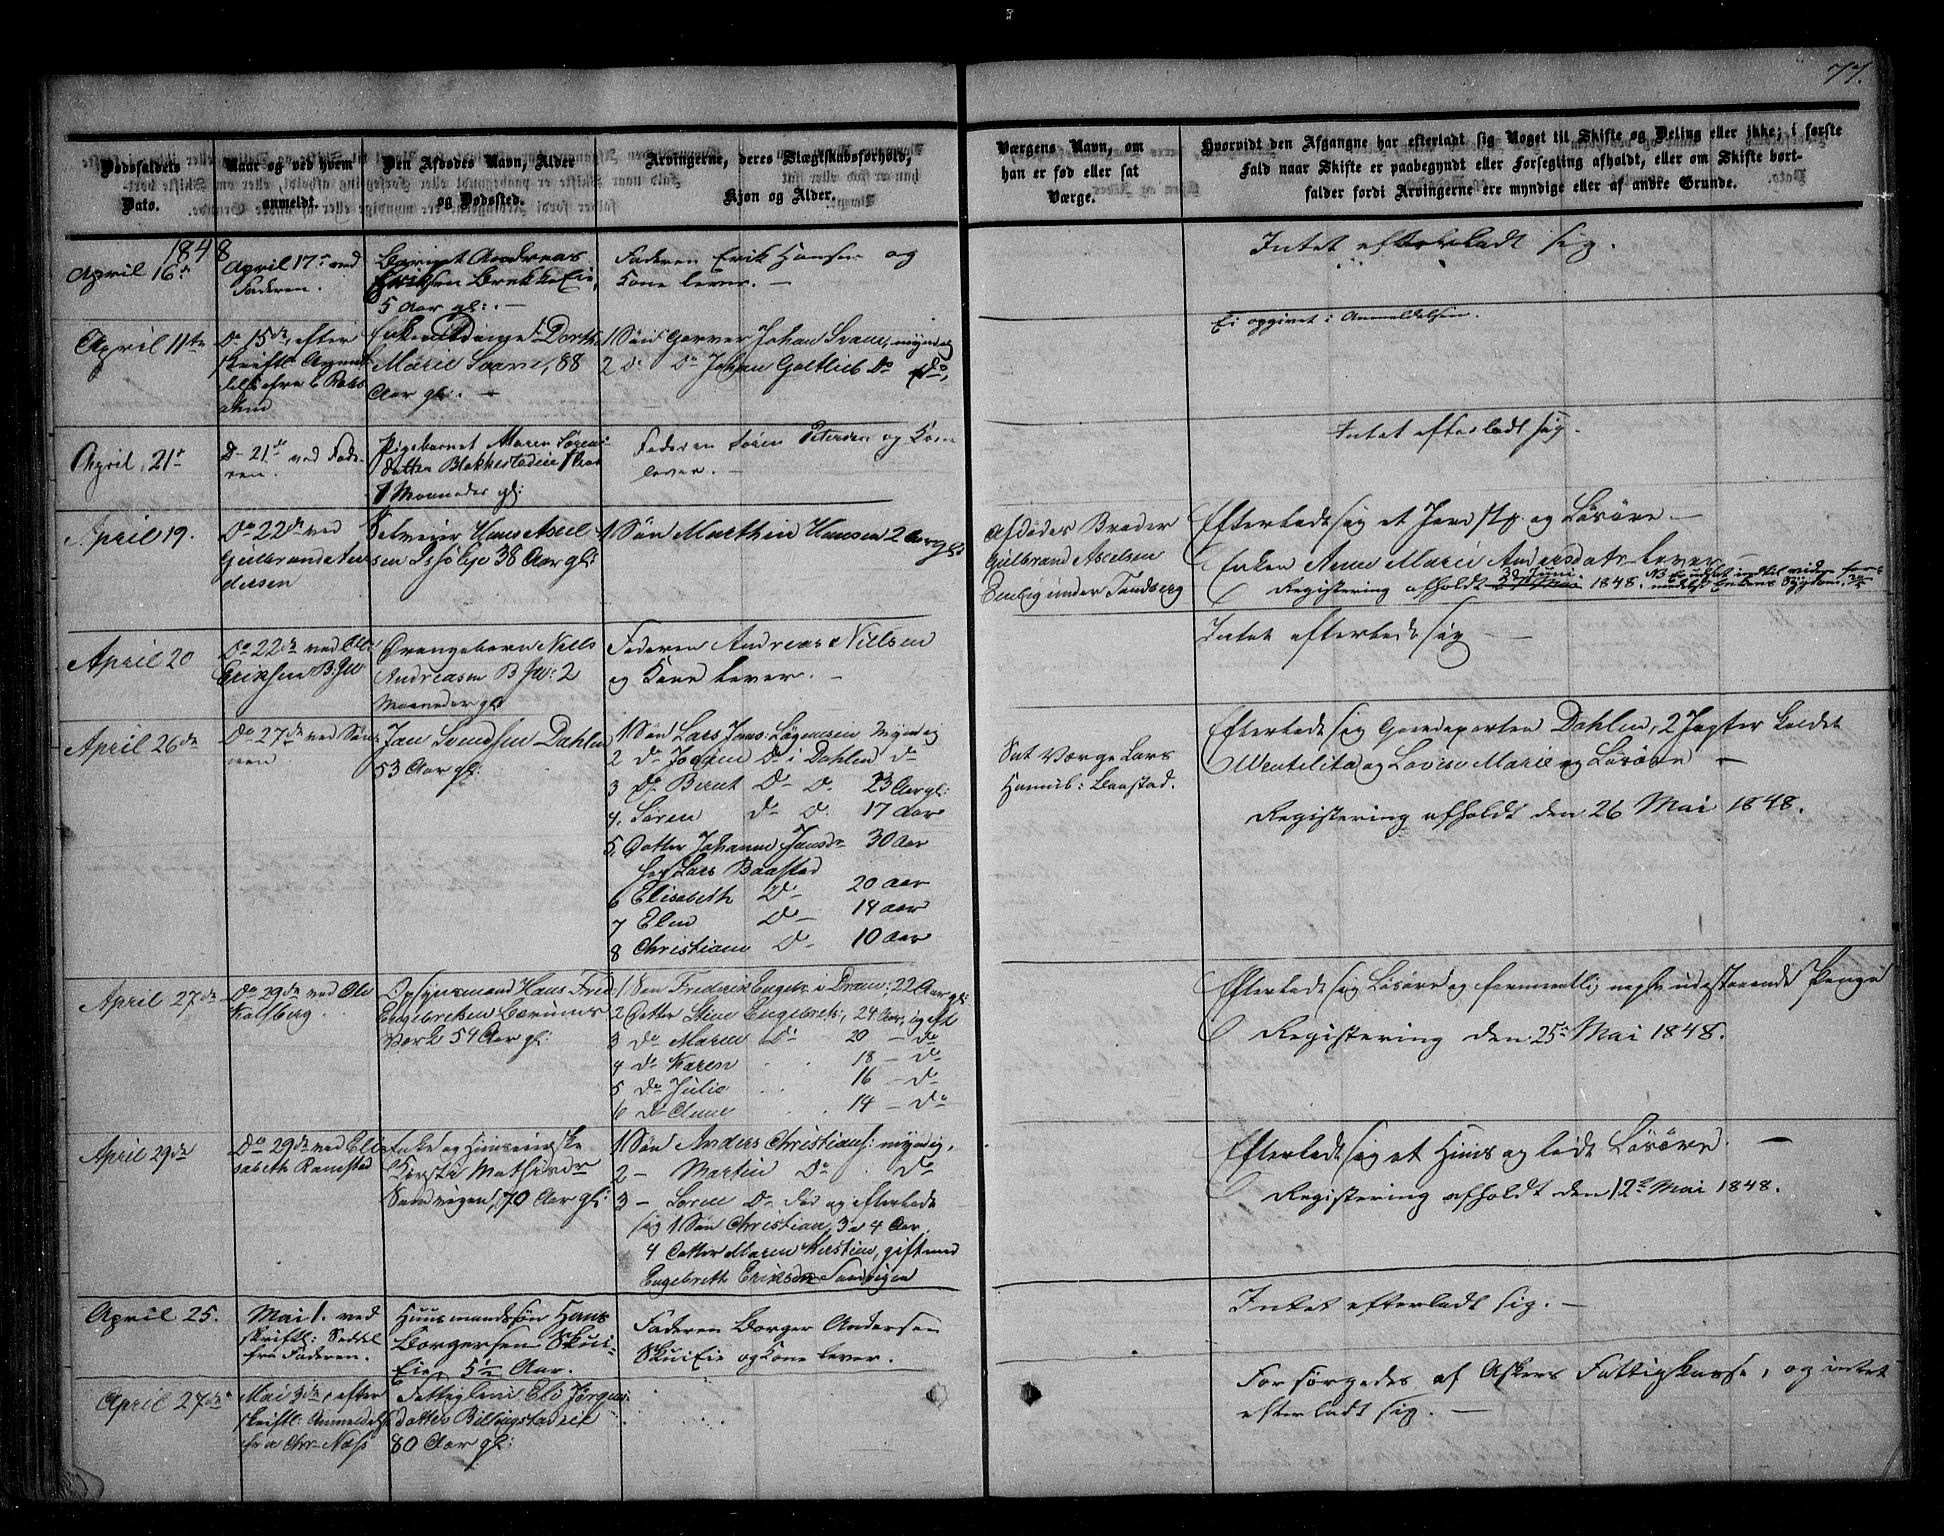 77.
Dødsfaldets
Dato.
Naar og ved hvem
anmeldt.
Den Afdødes Navn, Alder
og Dødssted.
Arvingerne, deres Slægtskabsforhold,
Kjøn og Alder.
Værgens Navn, om
han er fød eller sat
Værge.
Hvorvidt den Afgangne har efterladt sig Noget til Skifte og Deling eller ikke; i første
Fald naar Skifte er paabegyndt eller Forsegling afholdt, eller om Skifte bort-
falder fordi Arvingerne ere myndige eller af andre Grunde.
1848
April 16de
April 17de ved
Faderen.
Barnet Andreas
Eriksen Brekke Eie,
5 Aar gl: —
Faderen Erik Hansen og
Kone lever. —
Intet efterladt sig.
April 11te
Do 15de, efter
skriftl:
Enken Dorth
Marie Svane, 88
Aar gl: —
1 Søn Garver Johan Svane, myndig
2 Do Do Johan Gottlieb Do Do,
Ei opgivet i Anmeldelsen.
April 21de
Do 21de ved Fade-
ren.
Pigebarnet Maren Sørens-
datter Blakkestadeie
Maaneder gl:
Faderen Søren Petersen og Kone
lever. —
Intet efterladt sig.
April 19.
Do 22de ved
Gulbrand An-
dersen
Selveier Hans Axel-
sen 38 Aar gl:
1 Søn Marthin Hansen 2 Aar gl:
Afdødes Broder
Gulbrand Axelsen
under Tandberg
Efterlod sig et Jordstk. og Løsøre. —
Enken Anne Marie Andersdatr lever —
Registering afholdt 30 Juni 1848.
April 20
Do 22de ved Ole
Eriksen B:
Drengebarn Niels
Andreasen B 2
Maaneder gl:
Faderen Andreas Nillsen
og Kone lever. —
Intet efterlod sig —
April 26de
Do 27de ved Søn-
nen
Jan Svendsen Dahlen
53 Aar gl:
1 Søn Lars Jans: Myndig
2 do Do i Dahlen do
3 Do Bernt Do Do 23 Aar gl:
4. Søren Do Do 17 Aar
5. Datter Johanne Jansdr 30 Aar
Lars Baastad
6 Elisabeth Do 20 Aar
7 Elen Do 14 Aar
8 Christiane Do 10 Aar
Sat Værge Lars
Baastad.
Efterlod sig Gaardeparten Dahlen, 2 Jagter kaldet
og Lovise Marie og Løsøre —
Registering afholdt den 26 Mai 1848.
April 27de
Do 29de ved Ole
Kalsberg.
Opsynsmand Hans Fred
Engebretsen Bærums
Værk 54 Aar gl:
1 Søn Frederik Engebr: i Dram: 22 Aar gl:
2 Datter Stine Engebrets: 24 Aar, ugift
3 do Maren Do 20 — do
4 do Karen 18 — do
5 do Julie 16 — do
6 Do Anne 14 — do
Efterlod sig Løsøre og udestaaende Penge
Registering den 25de Mai 1848.
April 29de
Do 29de ved Eli-
sabeth Ramstad
Enke og
Kirsti Mathisdr
Sandvigen, 70 Aar gl:
1 Søn Anders Christians: myndig,
2 — Martin Do . do
3 — Søren Do død og efterlod
sig 1 Søn Christian, 3 a 4 Aar
4 Datter Maren Kirstine, gift med
Engebreth Eriksen Sandvigen
Efterlod sig et Huus og lidt Løsøre. —
Registering afholdt den 12te Mai 1848.
April 25.
Mai 1. ved
skriftl: Seddel
fra Faderen.
Huusmandssøn Hans
Borgersen Skui-
Eie, 5 Aar.
Faderen Borger Andersen
Skui Eie og Kone lever.
Intet efterladt sig. —
April 27de
Mai 3de, efter
skriftl: Anmeldelse
fra Chr. Næss
Fattiglem Eli Jørgens-
datter Billingstadeie
80 Aar gl:
Forsørgedes af Askers Fattigkasse, og intet
efterladt sig. —